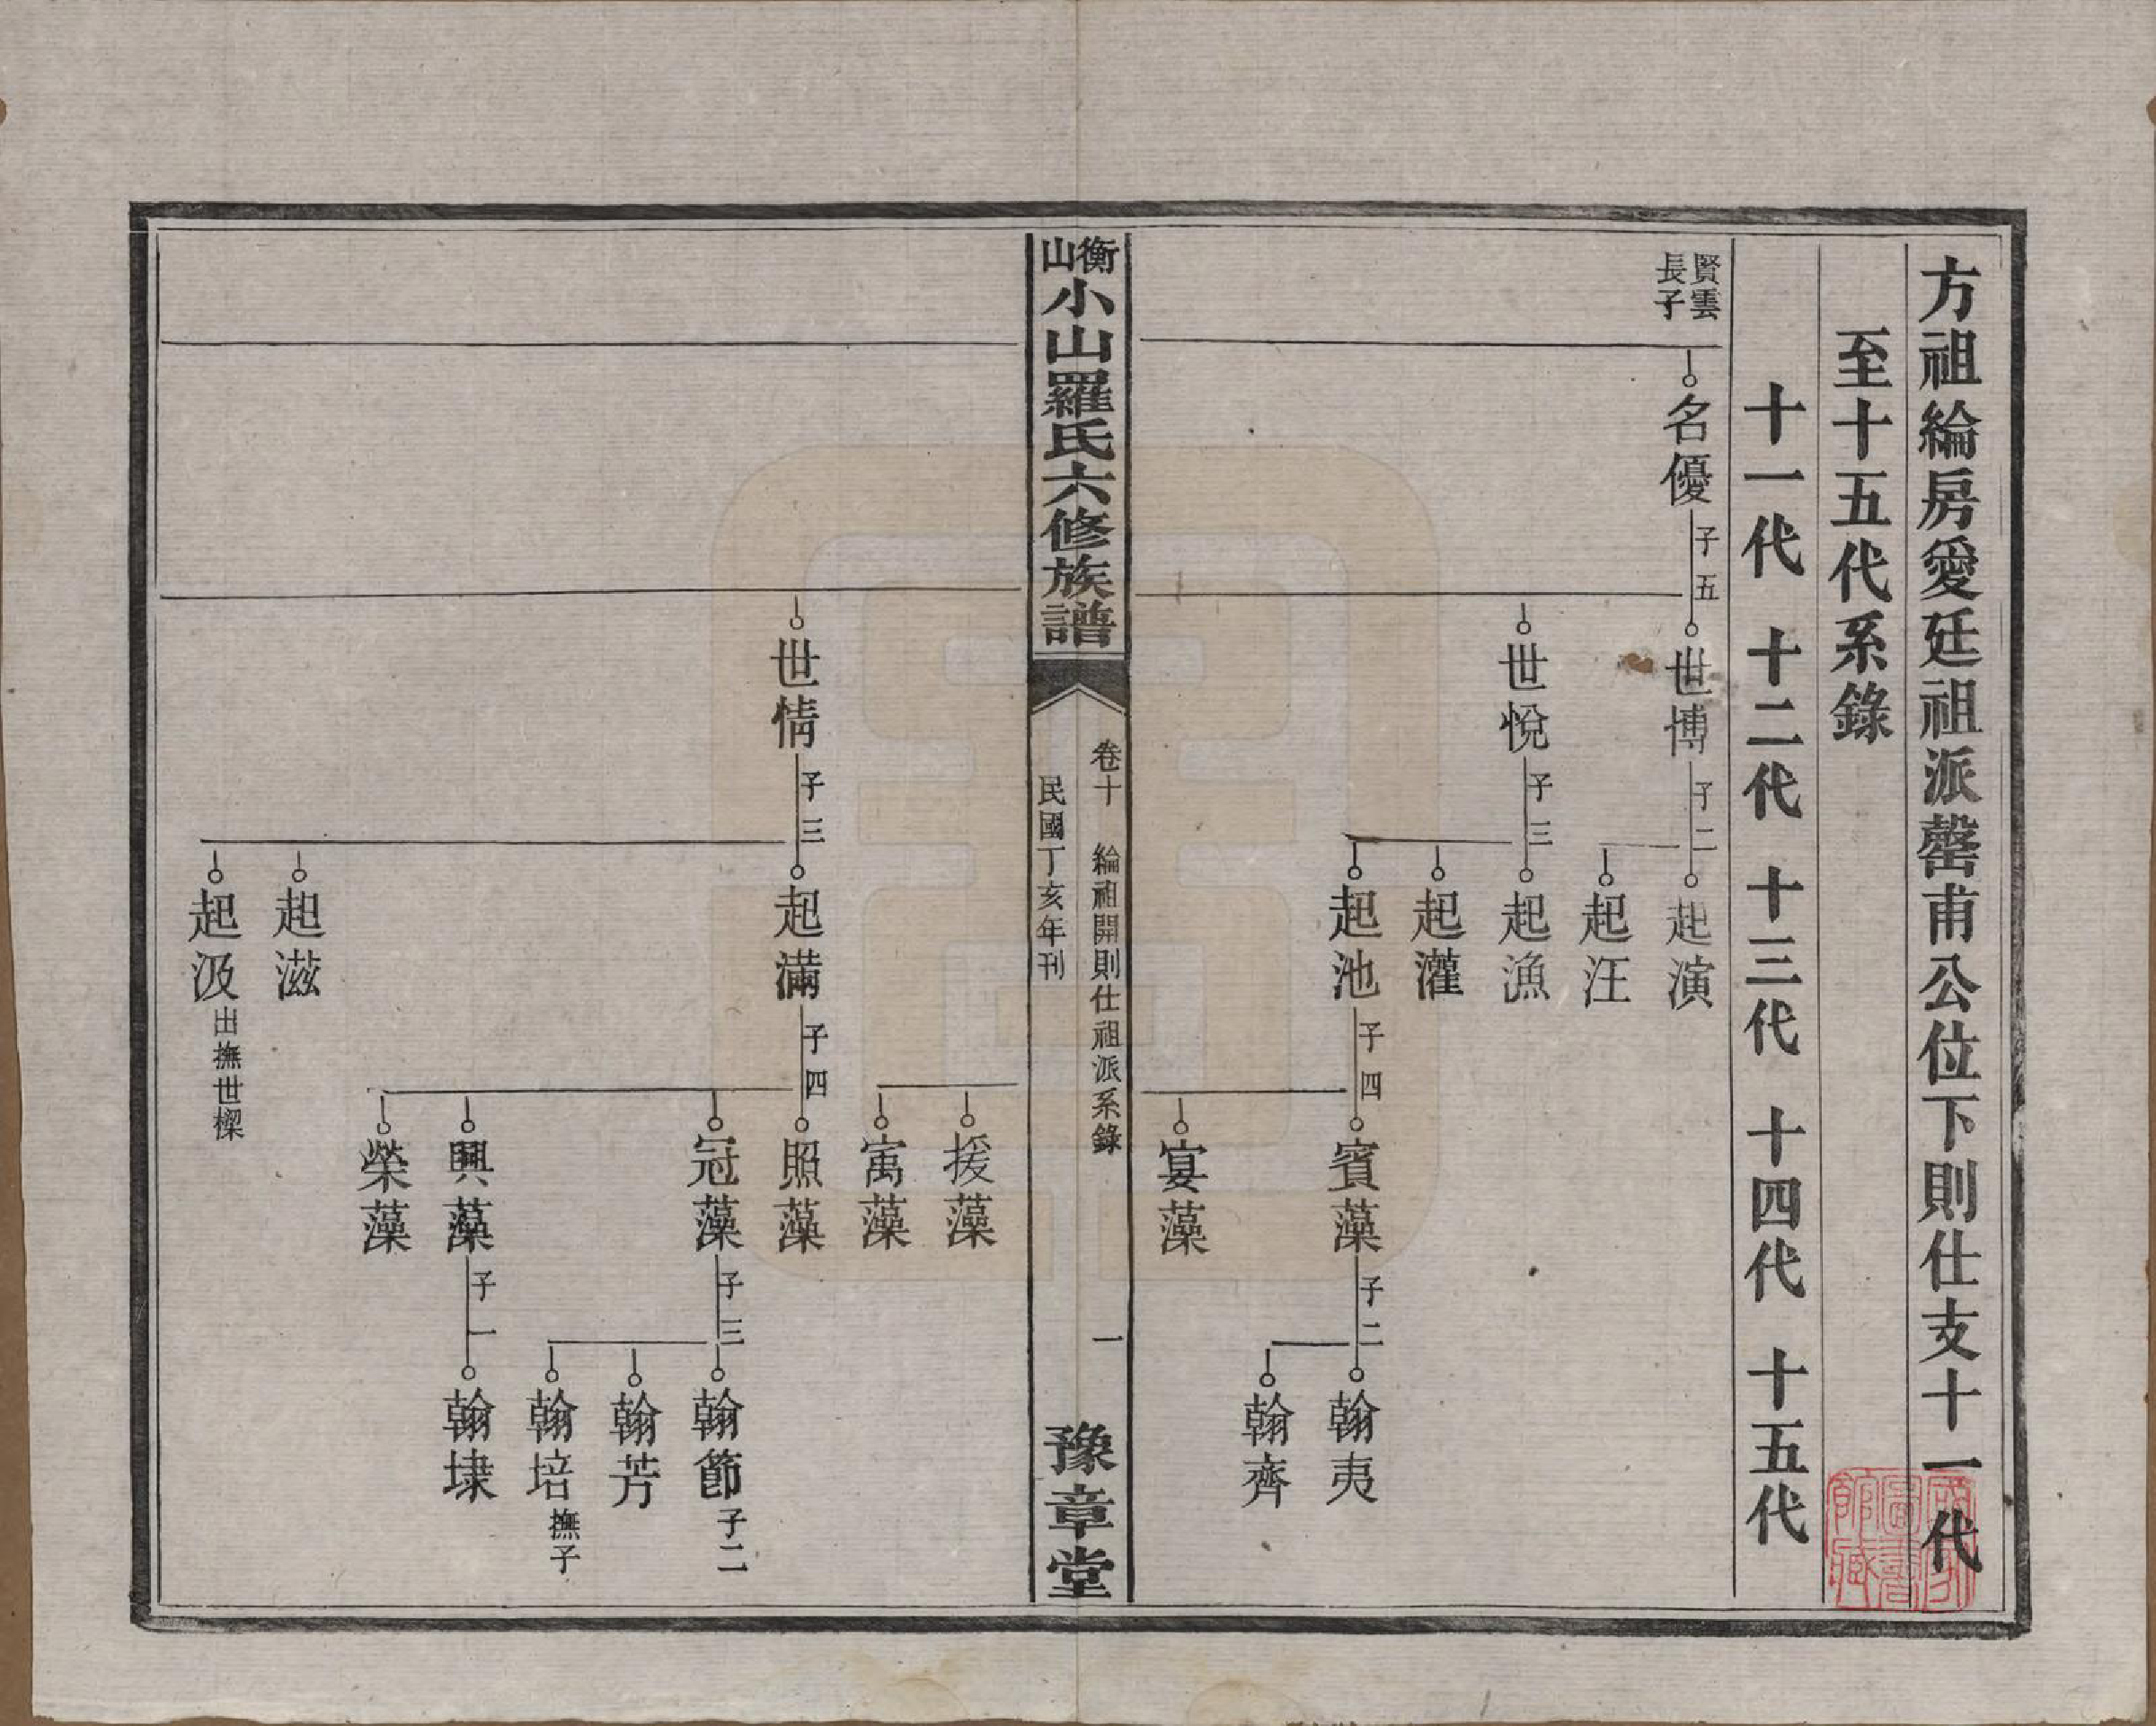 方祖綸房愛廷祖派罄甫公位下則仕支十一代
至十五代系錄
十一代 十二代 十三代 十四代 十五代
賢雲
長子
名優 子五
世博 子二
起演
起汪
世悅 子三
起漁
起灌
起池 子四
賓藻 子二
翰夷
翰齊
宴藻
衡山小山羅氏六修族譜
卷十 綸祖開則仕祖派系錄 一
民國丁亥年刊
豫章堂
援藻
寓藻
世情 子三
起滿 子四
照藻
冠藻 子三
翰節 子二
翰芳
翰培 撫子
興藻 子一
翰埭
榮藻
起滋
起汲 出撫世樑
國家圖書館藏